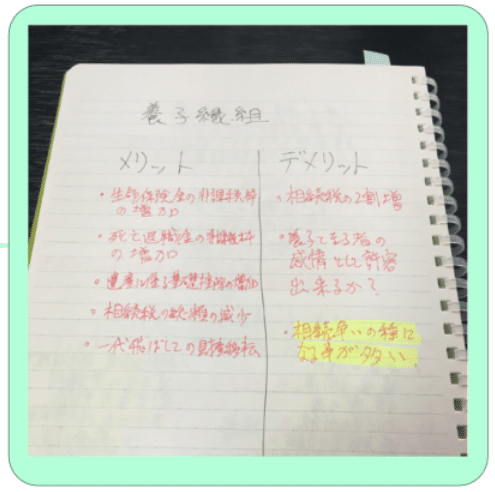 養子縁組
メリット
・生命保険金の非課税枠
の増加
・死亡退職金の非課税枠
の増加
・遺産に係る基礎控除の増加
・相続税の総額の減少
・一代飛ばしての財産移転
デメリット
・相続税の2割増
・養子となる者の
感情として許容
出来るか?
・相続争いの種に
なる事が多い。